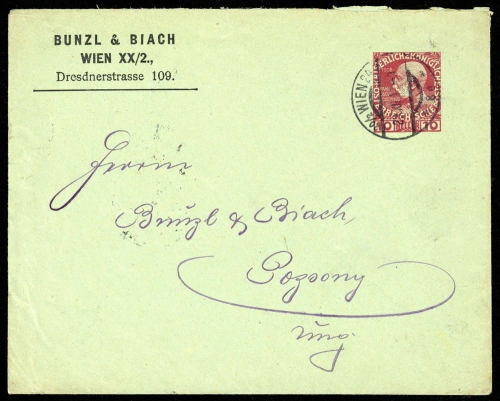 BUNZL & BIACH
WIEN XX/2.,
Dresdnerstrasse 109.
WIEN
10 HELLER 10
Herrn
Bunzl & Biach,
Pozsony
Ung.